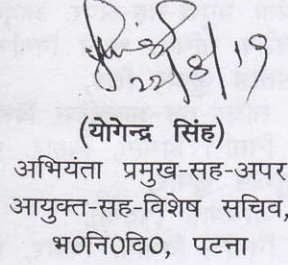 22/8/19
(योगेन्द्र सिंह)
अभियंता प्रमुख-सह-अपर
आयुक्त-सह-विशेष सचिव,
भ0नि0वि0, पटना